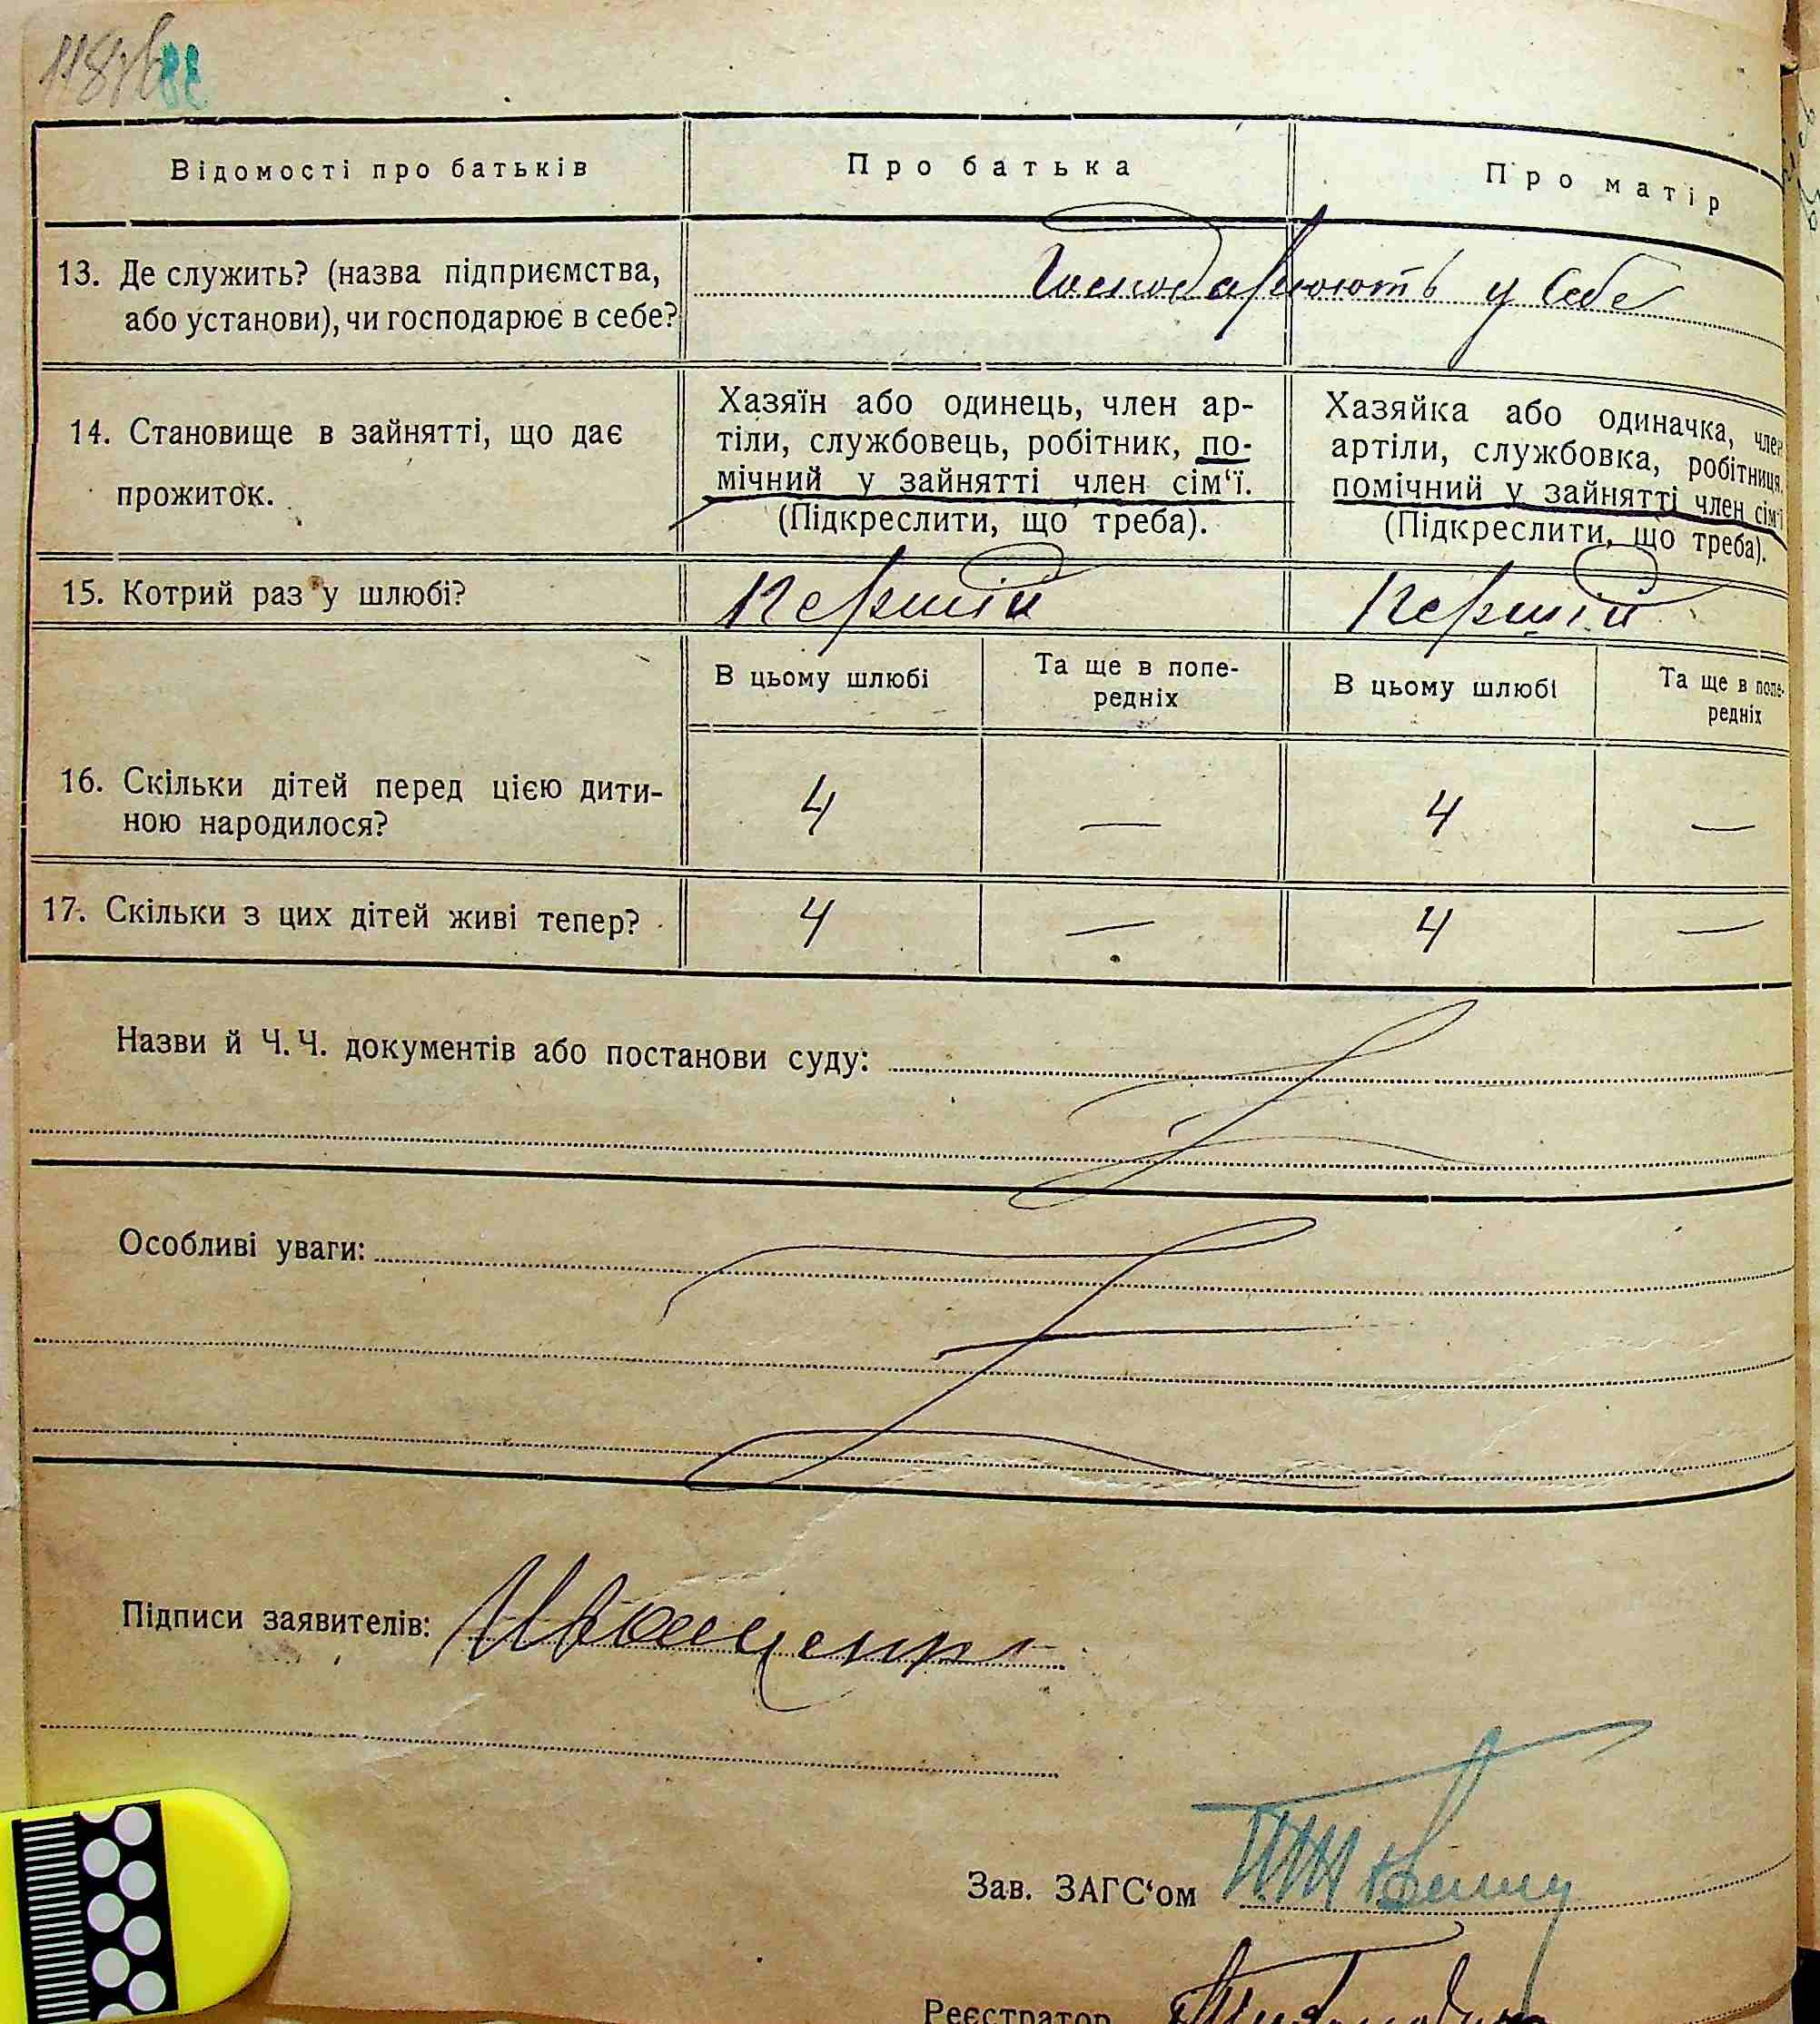 Відомості про батьків
Про батька
Про матір
13. Де служить? (назва підприємства,
або установи), чи господарює в себе?
Господарюють у себе
14. Становище в зайнятті, що дає
прожиток.
Хазяїн або одинець, член ар-
тіли, службовець, робітник, по-
мічний у зайнятті член сім‘ї.
(Підкреслити, що треба).
Хазяйка або одиначка, член
артіли, службовка, робітниця,
помічний у зайнятті член сім‘ї
(Підкреслити, що треба).
15. Котрий раз у шлюбі?
Перший
Перший
В цьому шлюбі
Та ще в попе-
редніх
В цьому шлюбі
Та ще в попе-
редніх
16. Скільки дітей перед цією дити-
ною народилося?
4 — 4 —
17. Скільки з цих дітей живі тепер?
4 — 4 —
Назви й Ч.Ч. документів або постанови суду:
Особливі уваги:
Підписи заявителів: Иванценко
Зав. ЗАГС‘ом
Реєстратор